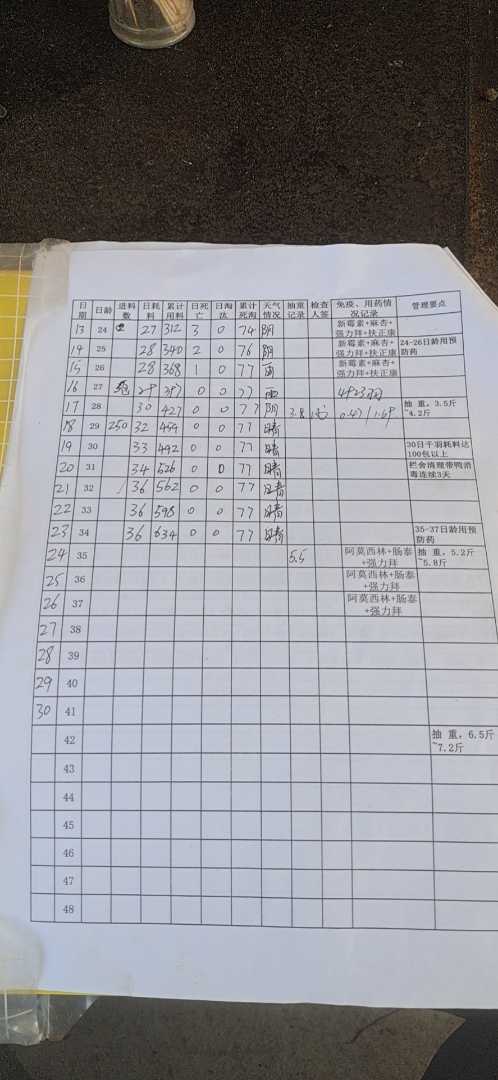 日期 日龄 进料数 日耗料 累计用料 日死亡 日淘汰 累计死淘 天气情况 抽重记录 检查人签 免疫、用药情况记录 管理要点
13 24 27 312 3 0 74 阴 新霉素+麻杏+强力拜+扶正康
14 25 28 340 2 0 76 阴 新霉素+麻杏+强力拜+扶正康 24-26日龄用预防药
15 26 28 368 1 0 77 雨 新霉素+麻杏+强力拜+扶正康
16 27 29 397 0 0 77 雨
17 28 30 427 0 0 77 阴 3.8 抽 重，3.5斤~4.2斤
18 29 250 32 459 0 0 77 晴
19 30 33 492 0 0 77 晴 30日千羽耗料达100包以上
20 31 34 526 0 0 77 晴 栏舍清理带鸭消毒连续3天
21 32 36 562 0 0 77 晴
22 33 36 598 0 0 77 晴
23 34 36 634 0 0 77 晴 35-37日龄用预防药
24 35 5.5 阿莫西林+肠泰+强力拜 抽 重，5.2斤~5.8斤
25 36 阿莫西林+肠泰+强力拜
26 37 阿莫西林+肠泰+强力拜
27 38
28 39
29 40
30 41
42 抽 重，6.5斤~7.2斤
43
44
45
46
47
48